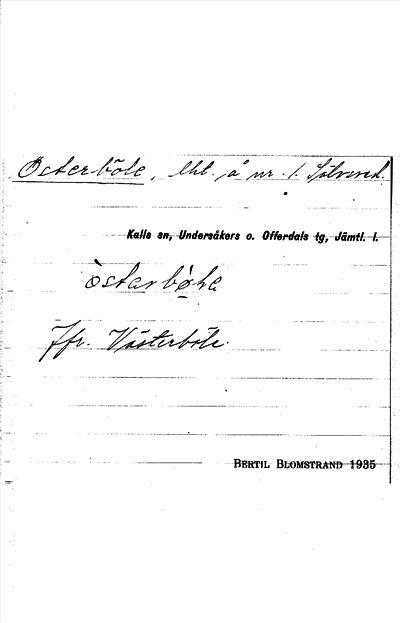 Österböle, lht. å nr. 1. Sölvsved.
Kalls sn, Undersåkers o. Offerdals tg, Jämtl. l.
òstarbø̀la
Jfr. Västerböle.
BERTIL BLOMSTRAND 1935